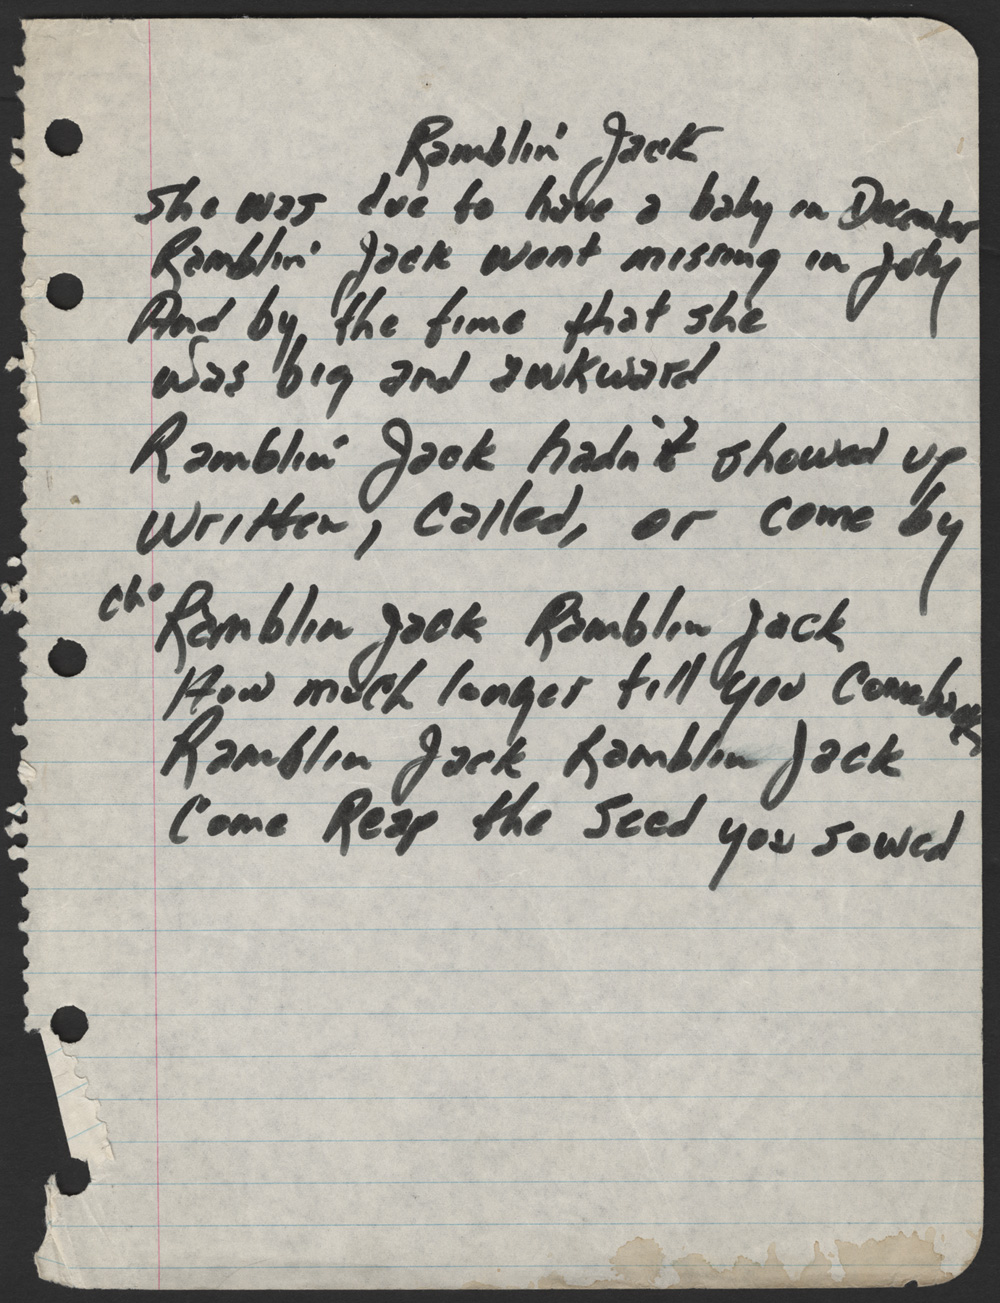 Ramblin' Jack
She was due to have a baby in December
Ramblin' Jack went missing in July
And by the time that she
was big and awkward
Ramblin' Jack hadn't showed up
written, called, or come by
cho Ramblin Jack Ramblin Jack
How much longer till you come back
Ramblin Jack Ramblin Jack
Come Reap the seed you sowed